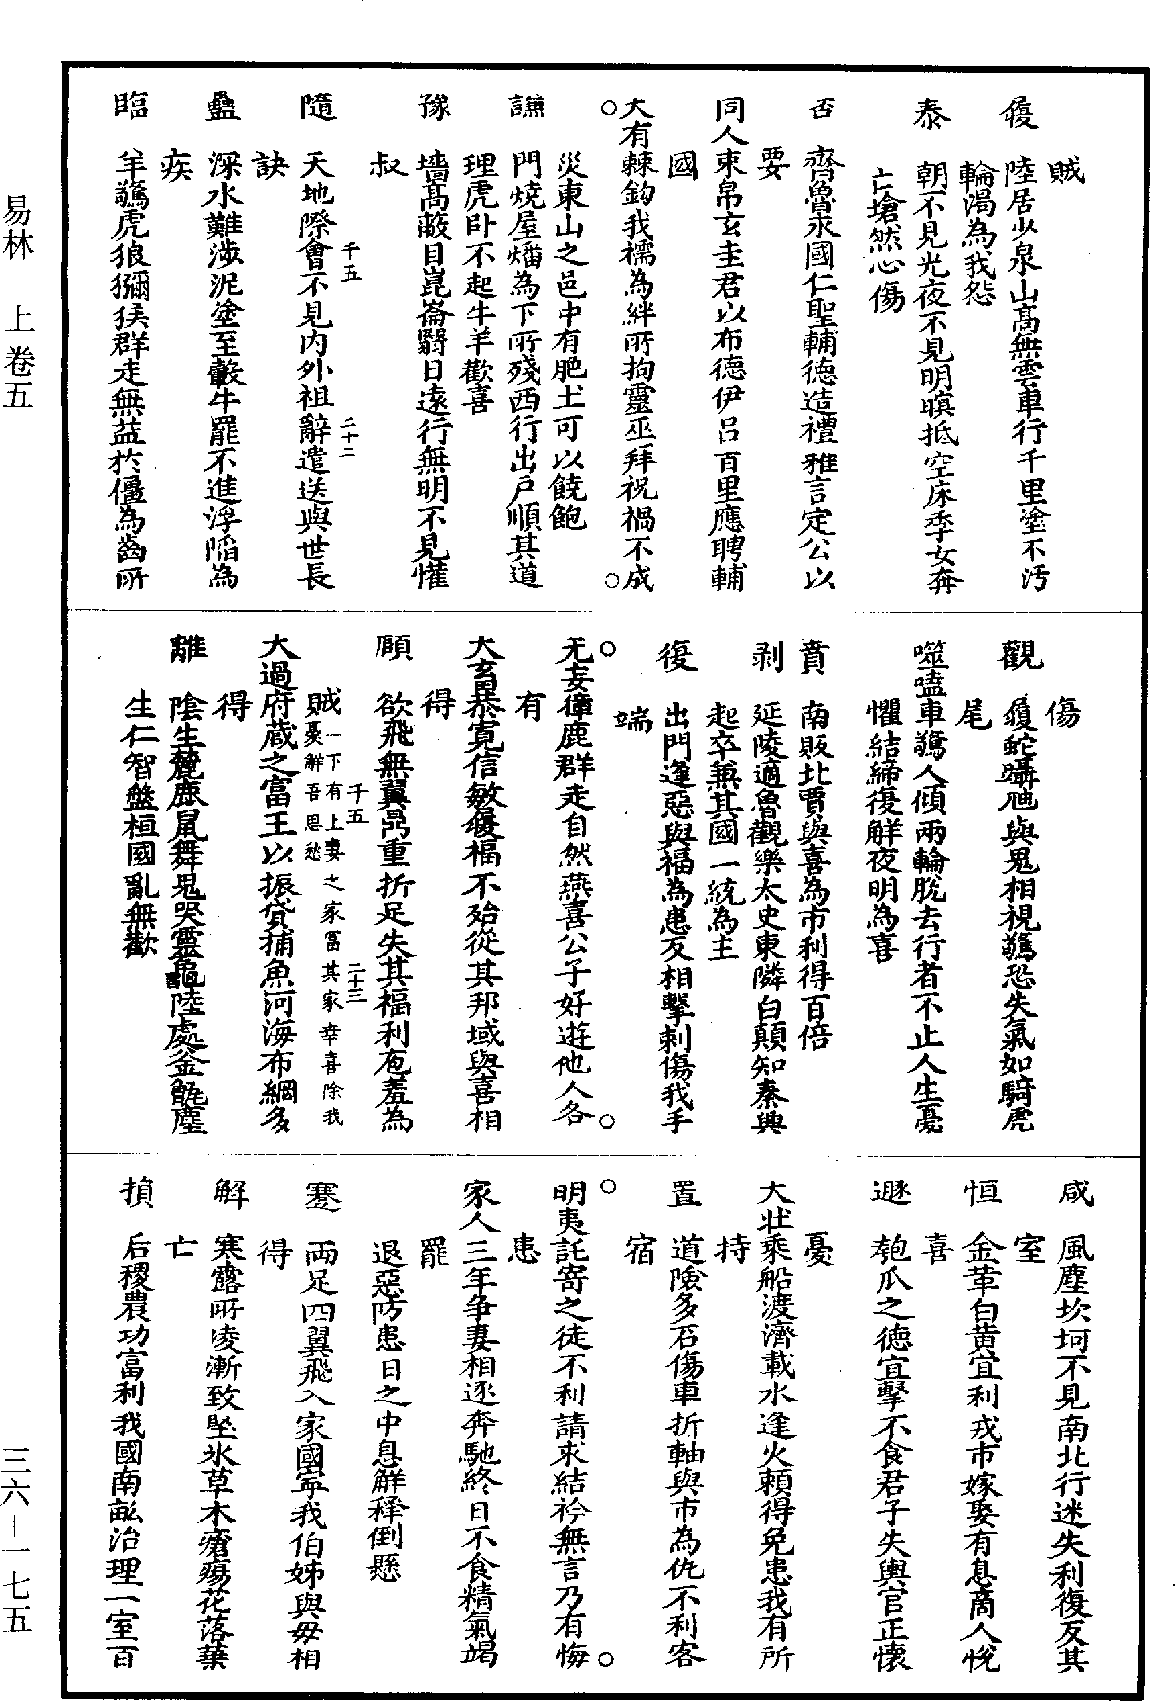 賊
履　陸居少泉山高無雲車行千里塗不污
輪渴為我怨
泰　朝不見光夜不見明暝抵空床季女奔
亡愴然心傷
否　齊魯永國仁聖輔德造禮雅言定公以
要
同人束帛玄圭君以布德伊呂百里應聘輔
國
○大有棘鈎我襦為絆所拘靈巫拜祝禍不成○
災東山之邑中有肥土可以饒飽
謙　門燒屋燔為下所殘西行出戶順其道
理虎卧不起牛羊歡喜
豫　墻高蔽目崑崙翳日遠行無明不見懽
叔
千五　二十二
隨　天地際會不見內外祖辭遣送與世長
訣
蠱　深水難涉泥塗至轂牛罷不進浮陷為
疾
臨　羊驚虎狼獼猴群走無益於僵為齒所
傷
觀　蝮蛇躡虺與鬼相視驚恐失氣如騎虎
尾
噬嗑車驚人傾兩輪脫去行者不止人生憂
懼結締復解夜明為喜
賁　南販北賈與喜為市利得百倍
剥　延陵適魯觀樂太史東隣白顛知秦興
起卒兼其國一統為主
復　出門逢惡與福為患反相擊刺傷我手
端
○无妄獐鹿群走自然燕喜公子好遊他人各○
有
大畜恭寬信敏履福不殆從其邦域與喜相
得
千五　二十三
頤　欲飛無翼鳥重折足失其福利庖羞為
賊一下有上妻之家富其家幸喜除我
憂解吾思愁
大過府藏之富王以振貸捕魚河海布網多
得
離　陰生麓鹿鼠舞鬼哭靈龜陸處釜甑塵
生仁智盤桓國亂無歡
咸　風塵坎坷不見南北行迷失利復反其
室
恒　金革白黃宜利戎市嫁娶有息商人悅
喜
遯　匏瓜之德宜擊不食君子失輿官正懷
憂
大壯乘船渡濟載水逢火賴得免患我有所
持
置　道險多石傷車折軸與市為仇不利客
宿
○明夷託寄之徒不利請求結衿無言乃有悔○
患
家人三年爭妻相逐奔馳終日不食精氣竭
罷
退惡防患日之中息解釋倒懸
蹇　兩足四翼飛入家國寧我伯姊與母相
得
解　寒露所凌漸致堅氷草木瘡瘍花落葉
亡
損　后稷農功富利我國南畝治理一室百
易林　上卷五
三六—一七五